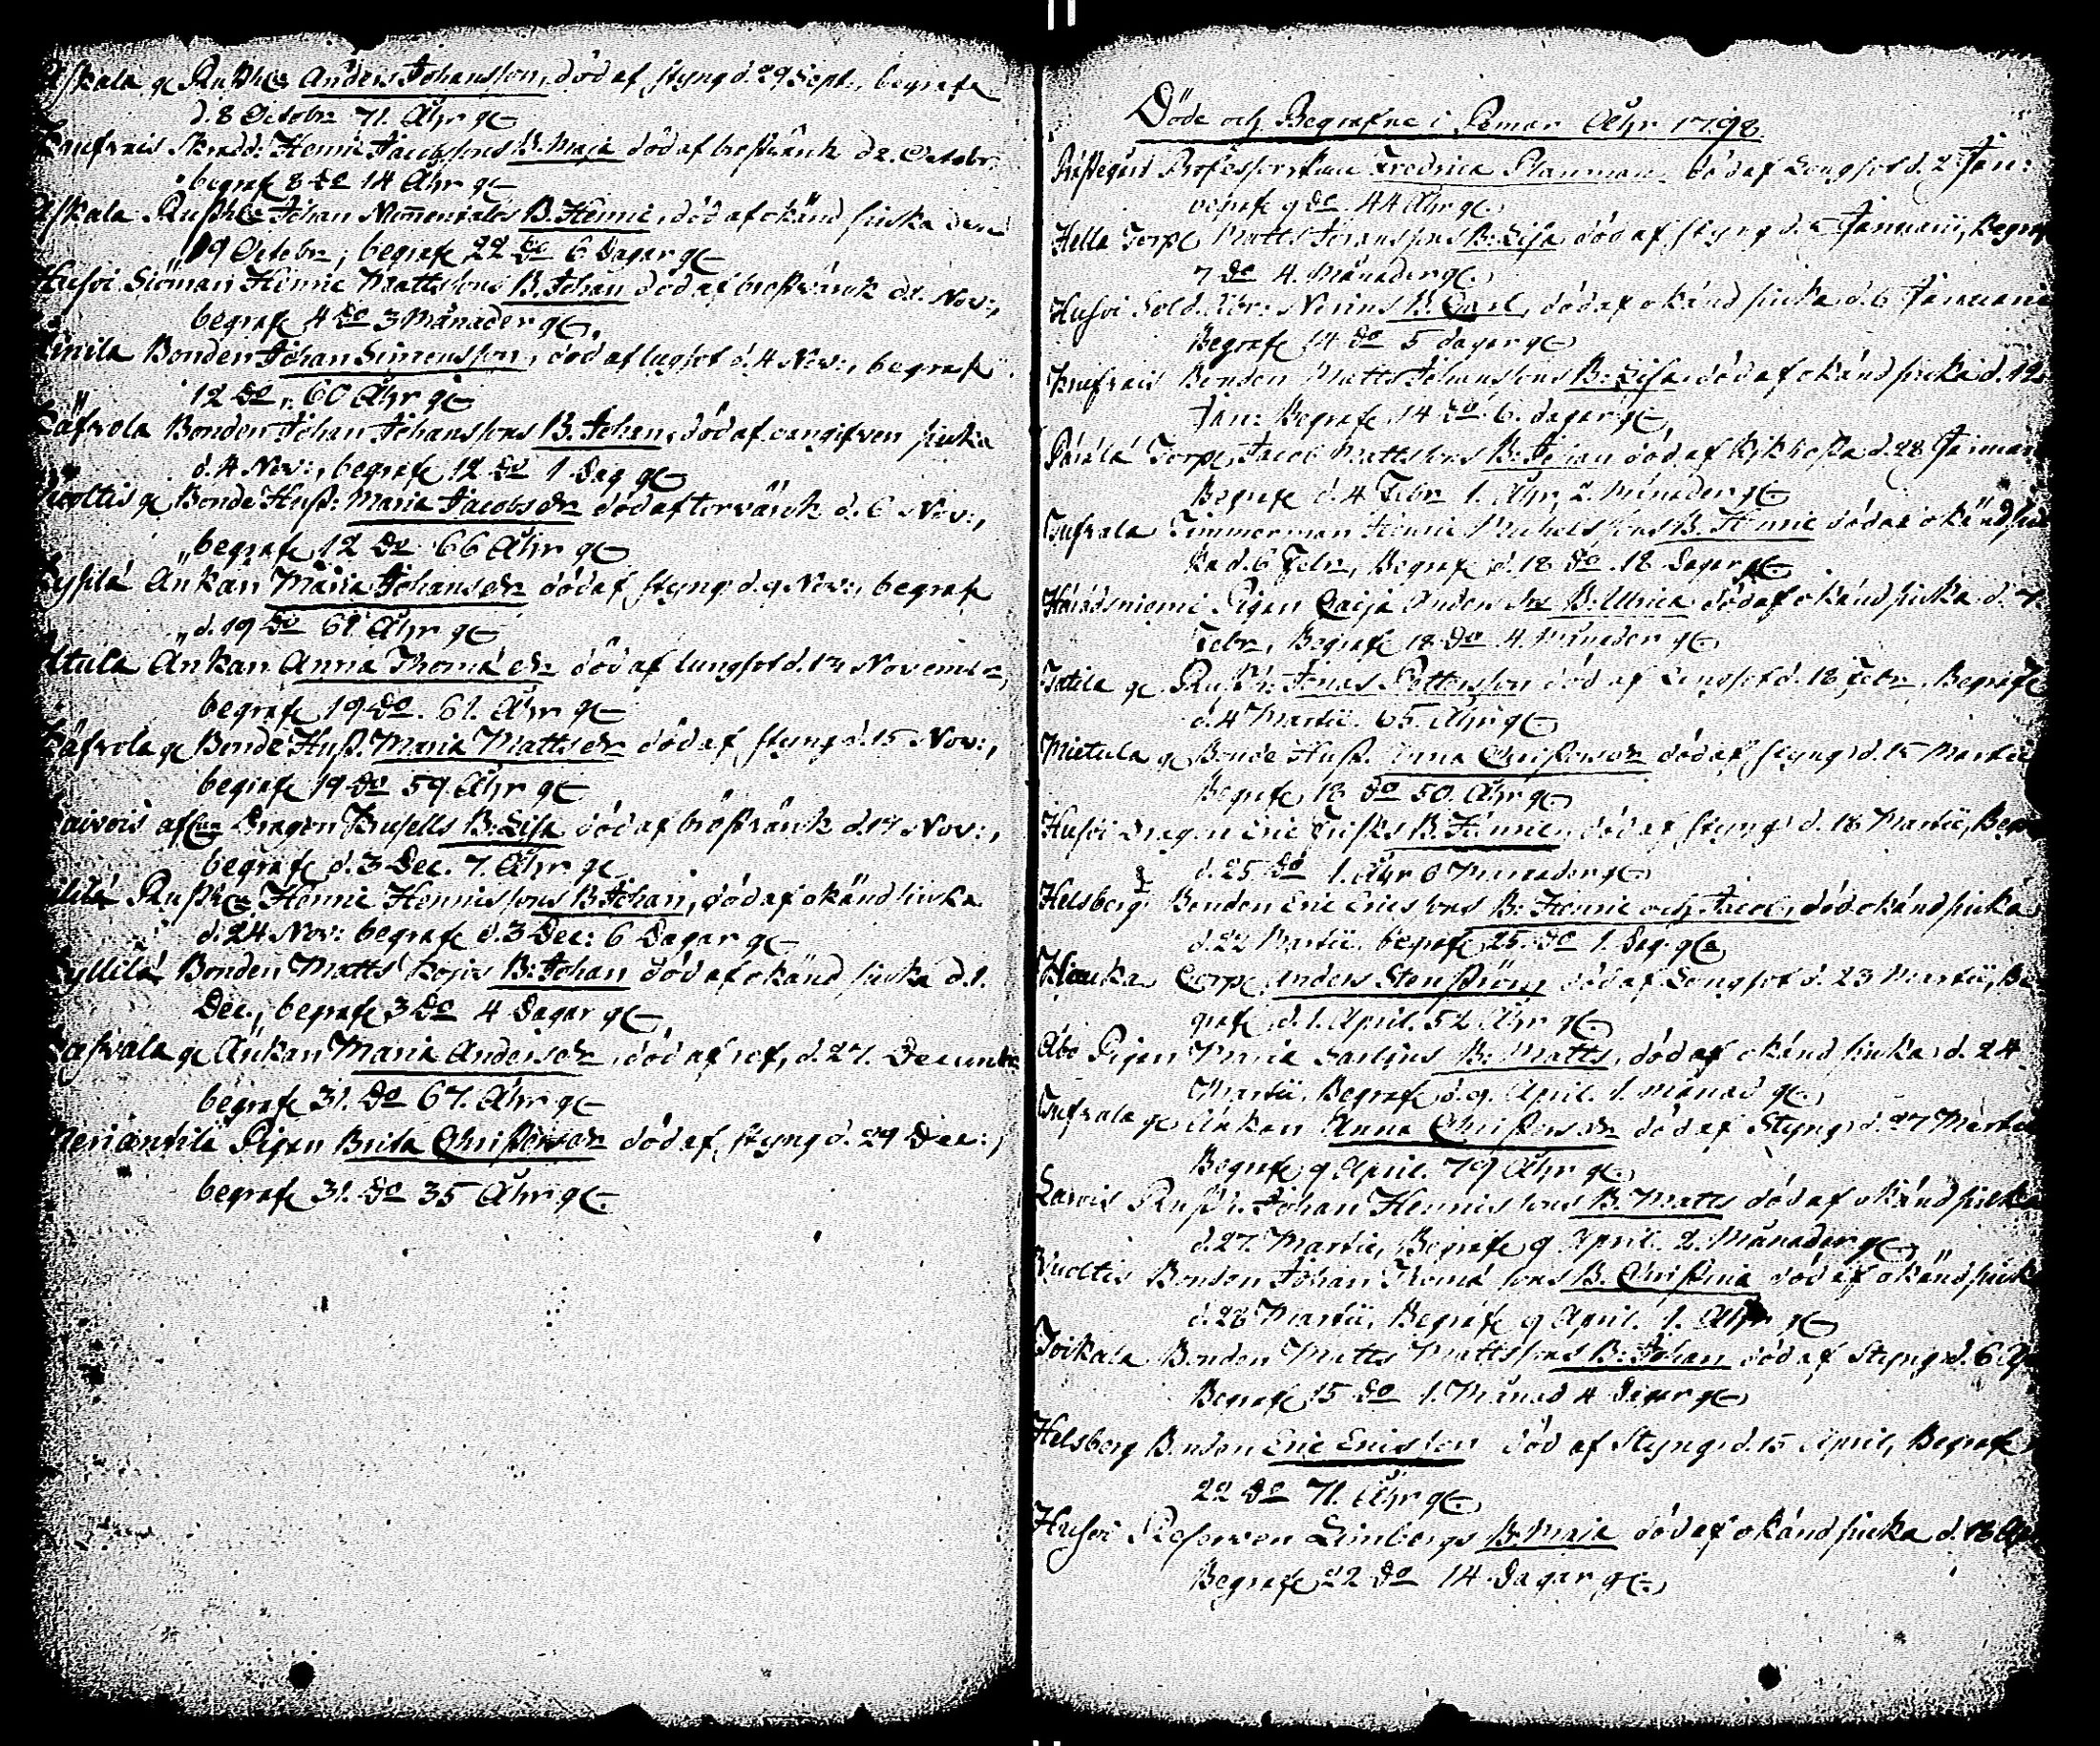 Askala g. Rusth. Anders Johansson, död af styng d. 29 Sept., begrafs
d. 8 Octobr. 71. Åhr g.
Skredd: Henric Jacobssons B. Maja död af bröstvärck d 2. Octobr,
begrafs 8 do 14 Åhr g.
Askala Rusth. Johan B. Henric, död af okänd siuka den
19 Octobr, begrafs 22 do 6 Dagar g.
Husvi Siöman Henric Mattssons B. Johan död af bröstvärck d 2. Nov:,
begrafs 4 do 3 Månader g.
Bonden Johan Simonsson, död af lugsot d. 4 Nov:, begrafs
12 do, 60 Åhr g.
Bonden Johan Johanssons B. Johan, död af oangifven siuka
d. 4 Nov:, begrafs 12 do 1 Dag g.
Vuoltis g. Bonde Hust: Maria Jacobsdr död af torvärck d. 6 Nov:,
begrafs 12 do 66 Åhr g.
Änkan Maria Johansdr död af styng d. 9 Nov:, begrafs
d. 19 do 61. Åhr g.
Änkan Anna Thomædr död af lungsot d. 14 Novembr,
begrafs 19 do. 61. Åhr g.
g. Bonde Hust. Maria Mattsdr död af styng d. 15 Nov:,
begrafs 19 do 59. Åhr g.
Dragon Krusells B: Lisa död af bröstvärck d. 17 Nov:,
begrafs d. 3 Dec. 7. Åhr g.
Rusth. Henric Henricssons B. Johan, död af okänd siuka
d. 24 Nov: begrafs d. 3 Dec: 6 Dagar g.
Bonden Matts B: Johan död af okänd siuka d. 1.
Dec., begrafs 3 do 4 Dagar g.
g. Änkan Maria Andersdr, död af rof, d. 27. Decembr
begrafs 31. do 67. Åhr g.
Pigan Brita Christersdr död af styng d. 29 Dec:,
begrafs 31. do 35 Åhr g.
Döde och Begrafne i Pemar Åhr 1798
Prästegård Professorskan Fredrica Planman död af Lungsot d. 2 Jan:
begrafs 9 do. 44 Åhr g.
Hella Torp. Matts Johanssons B: Lisa död af styng d. Januarii, Begrafs
7 do 4. Månader g.
Husvi Sold. B. Carl, död af okänd siuka d. 6 Januarii
Begrafs 14 do 5 dagar g.
Bonden Matts Johanssons B: Lisa död af okänd siuka d. 12
Jan: Begrafs 14 do 6. dagar g.
Torp. Jacob Mattssons B: Johan död af Kikhosta d. 28 Januar
Begrafs d. 4 Febr 1. Åhr 2. Månader g.
Timmerman Henric Michelssons B. Henric död af okänd siu
ka d. 6 Febr, Begrafs d. 18 do. 18 Dagar g.
Pigan Caisa Andersdr B: Ulrica död af okänd siuka d. 7
Febr, Begrafs 18 do 4. Månader g.
g. Rusth. Jonas Pettersson död af Lungsot d. 18 Febr. Begrafs
d. 4 Martii. 65. Åhr g.
Mietula g. Bonde Hust. Anna Christersdr död af styng d. 15 Martii
Begrafs 18 do 50. Åhr g.
Husvi Dragon Eric Frisks B. Henric, död af styng d. 18 Martii, Begr
d. 25 do 1. Åhr 6 Månader g.
Helsberg Bonden Eric Ericssons B: Henric och Jacob, död okänd siuka
d. 22 Martii. begrafs 25. do 1. Dag. g.
Corp. Anders Stenström död af Lungsot d. 23 Martii, Be
grafs d. 1. April. 52 Åhr g.
Åbo Pigan Maria B: Matts, död af okänd siuka d. 24
Martii, Begrafs d. 9. April. 1. Månad g.
g. Änkan Anna Christersdr död af Styng d. 27 Martii
Begrafs 9 April. 79 Åhr g.
Rusth. Johan Henricssons B. Matts död af okänd siuka
d. 27. Martii, Begrafs 9 April. 2. Månader g.
Vuoltis Bonden Johan Thomæ sons B. Christina död af okänd siuk
d. 28 Martii, Begrafs 9 April. 1. Åhr g.
Toikala Bonden Matts Mattssons B: Johan död af Styng d. 6 Ap
Begrafs 15 do 1. Månad 4 Dagar g.
Helsberg Bonden Eric Ericsson död af Styng d. 15 April, Begrafs
22 do 71. Åhr g.
Husvi Reserven Limbergs B. Maja död af okänd siuka d. 18 Ap
Begrafs 22 do 14 Dagar g.